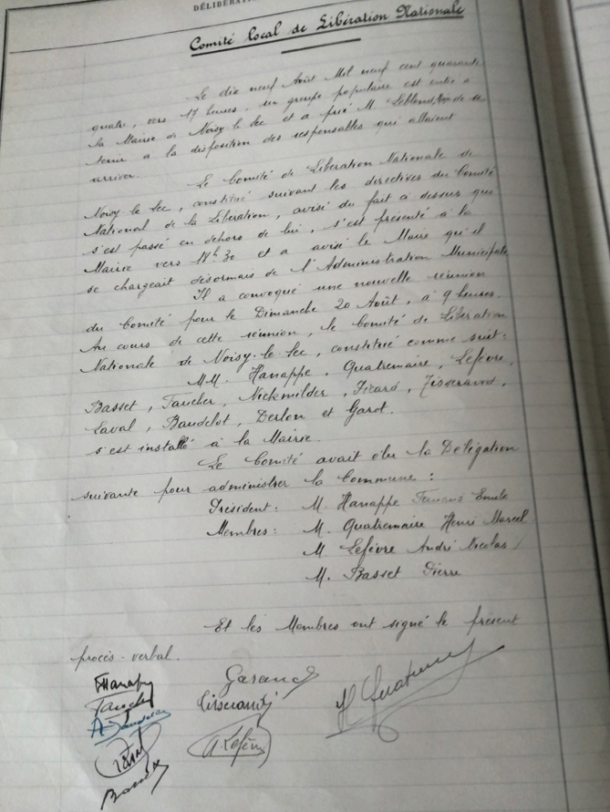 DÉLIBÉRA
Comité local de Libération Nationale
Le dix neuf Août Mil neuf cent quarante
quatre, vers 17 heures, un groupe populaire est entré à
la Mairie de Noisy le Sec et a prié M. de se
tenir à la disposition des responsables qui allaient
arriver.
Le Comité de Libération Nationale de
Noisy le Sec, constitué suivant les directives du Comité
National de la Libération, avisé du fait a dessus qui
s'est passé en dehors de lui, s'est présenté à la
Mairie vers 18h30 et a avisé le Maire qu'il
se chargeait désormais de l'Administration Municipale
Il a convoqué une nouvelle réunion
du Comité pour le Dimanche 20 Août, à 9 heures.
Au cours de cette réunion, le Comité de Libération
Nationale de Noisy-le-Sec, constitué comme suit:
MM. Hanappe, Quatremaire, Lefèvre,
Basset, Taucher, Nickmilder, Picard,
Laval, Baudelot, Derlon et Garot.
s'est installé à la Mairie.
Le Comité avait élu la Délégation
suivante pour administrer la Commune:
Président: M. Hanappe Emile
Membres: M. Quatremaire Henri Marcel
M Lefèvre André Nicolas
M. Basset Pierre
Et les Membres ont signé le présent
procès-verbal.